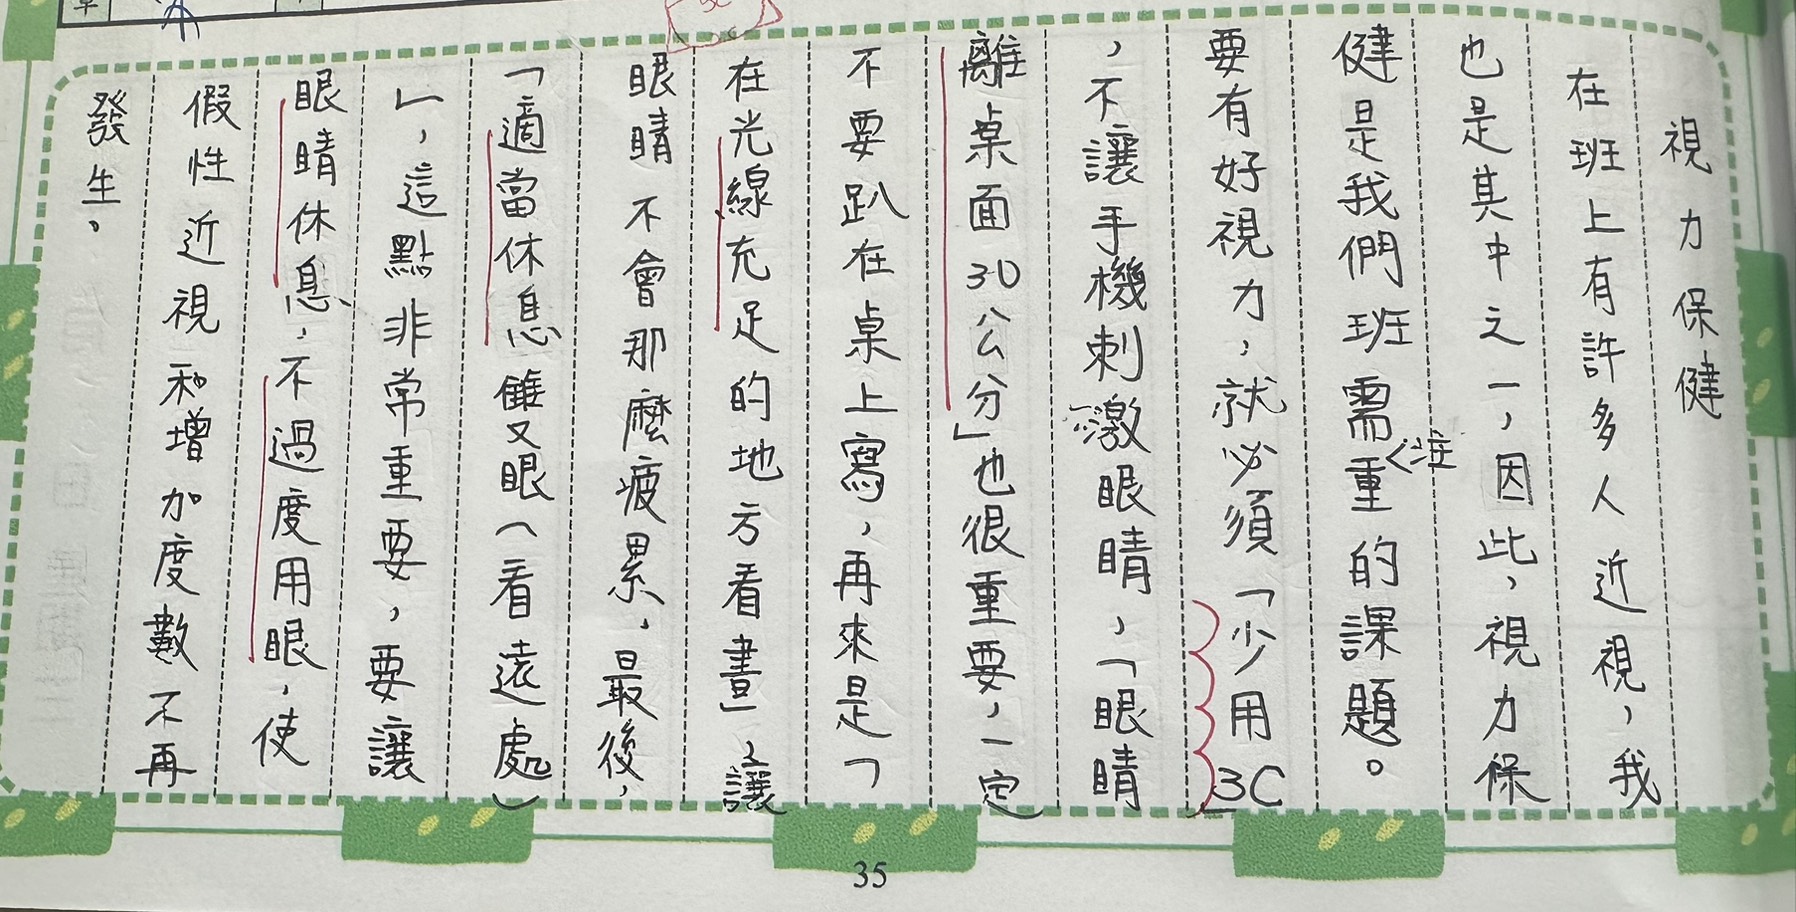 視力保健
在班上有許多人近視，我
也是其中之一，因此，視力保
健是我們班需注重的課題。
要有好視力，就必須「少用3C
，不讓手機刺激眼睛，「眼睛
離桌面30公分」也很重要，一定
不要趴在桌上寫，再來是「
在光線充足的地方看書」，讓
眼睛不會那麼疲累，最後，
「適當休息雙眼（看遠處）
」，這點非常重要，要讓
眼睛休息，不過度用眼，使
假性近視和增加度數不再
發生。
35